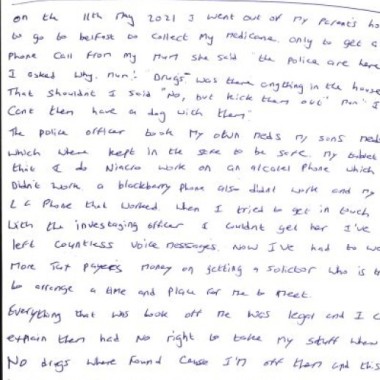 on the 11th May 2021 I went out of my Parent's ho
to go to belfast to collect my medicane only to get a
Phone Call from my mum she said "the Police are here
I asked why. mum: "Drugs" was there anything in the house
That shouldnt I said "No, but kick them out" mum "I
Cant them have a day with them"
The Police officer took my own meds my sons meds
which where kept in the safe to be safe. my tablet
that I do Niacro work on an alcatel Phone which
Didn't work a blackberry Phone also didnt work and my
LG Phone that worked. when I tried to get in touch
with the investaging officer I couldnt get her I've
left countless voice messages. Now I've had to
More Tax payers money on getting a solicitor who is
to arrange a time and Place for me to meet.
Everything that was took off me was legal and I
explain them had No right to take my stuff when
No drugs where found Cause I'm off them and this